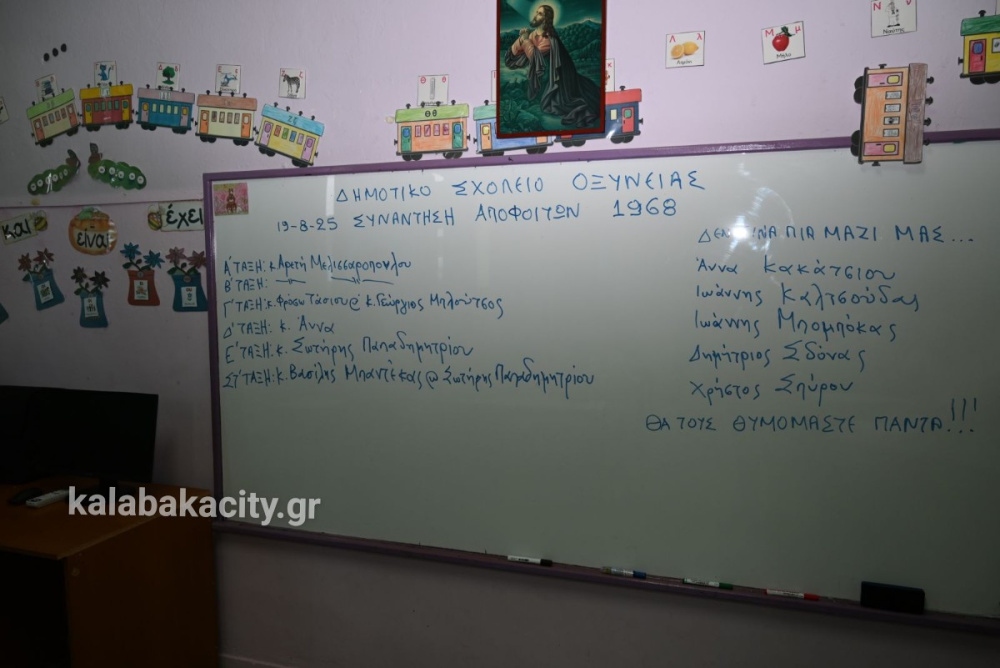 Θ θ
Λ λ
Μ μ
Μήλο
Ν ν
Ναύτης
Θθ
και
είναι
έχει
ΔΗΜΟΤΙΚΟ ΣΧΟΛΕΙΟ ΟΞΥΝΕΙΑΣ
19-8-25 ΣΥΝΑΝΤΗΣΗ ΑΠΟΦΟΙΤΩΝ 1968
Α΄ ΤΑΞΗ: κ. Αρετή Μελισσαροπούλου
Β΄ ΤΑΞΗ:
Γ΄ ΤΑΞΗ: κ. Φρόσω Τάσιου @ κ. Γεώργιος Μπλούτσος
Δ΄ ΤΑΞΗ: κ. Άννα
Ε΄ ΤΑΞΗ: κ. Σωτήρης Παπαδημητρίου
ΣΤ΄ ΤΑΞΗ: κ. Βασίλης Μπαντέκας @ Σωτήρης Παπαδημητρίου
ΔΕΝ ΕΙΝΑΙ ΠΙΑ ΜΑΖΙ ΜΑΣ...
Άννα Κακάτσιου
Ιωάννης Καλτσούδας
Ιωάννης Μπομπόκας
Δημήτριος Σδόνας
Χρήστος Σπύρου
ΘΑ ΤΟΥΣ ΘΥΜΟΜΑΣΤΕ ΠΑΝΤΑ!!!
kalabakacity.gr